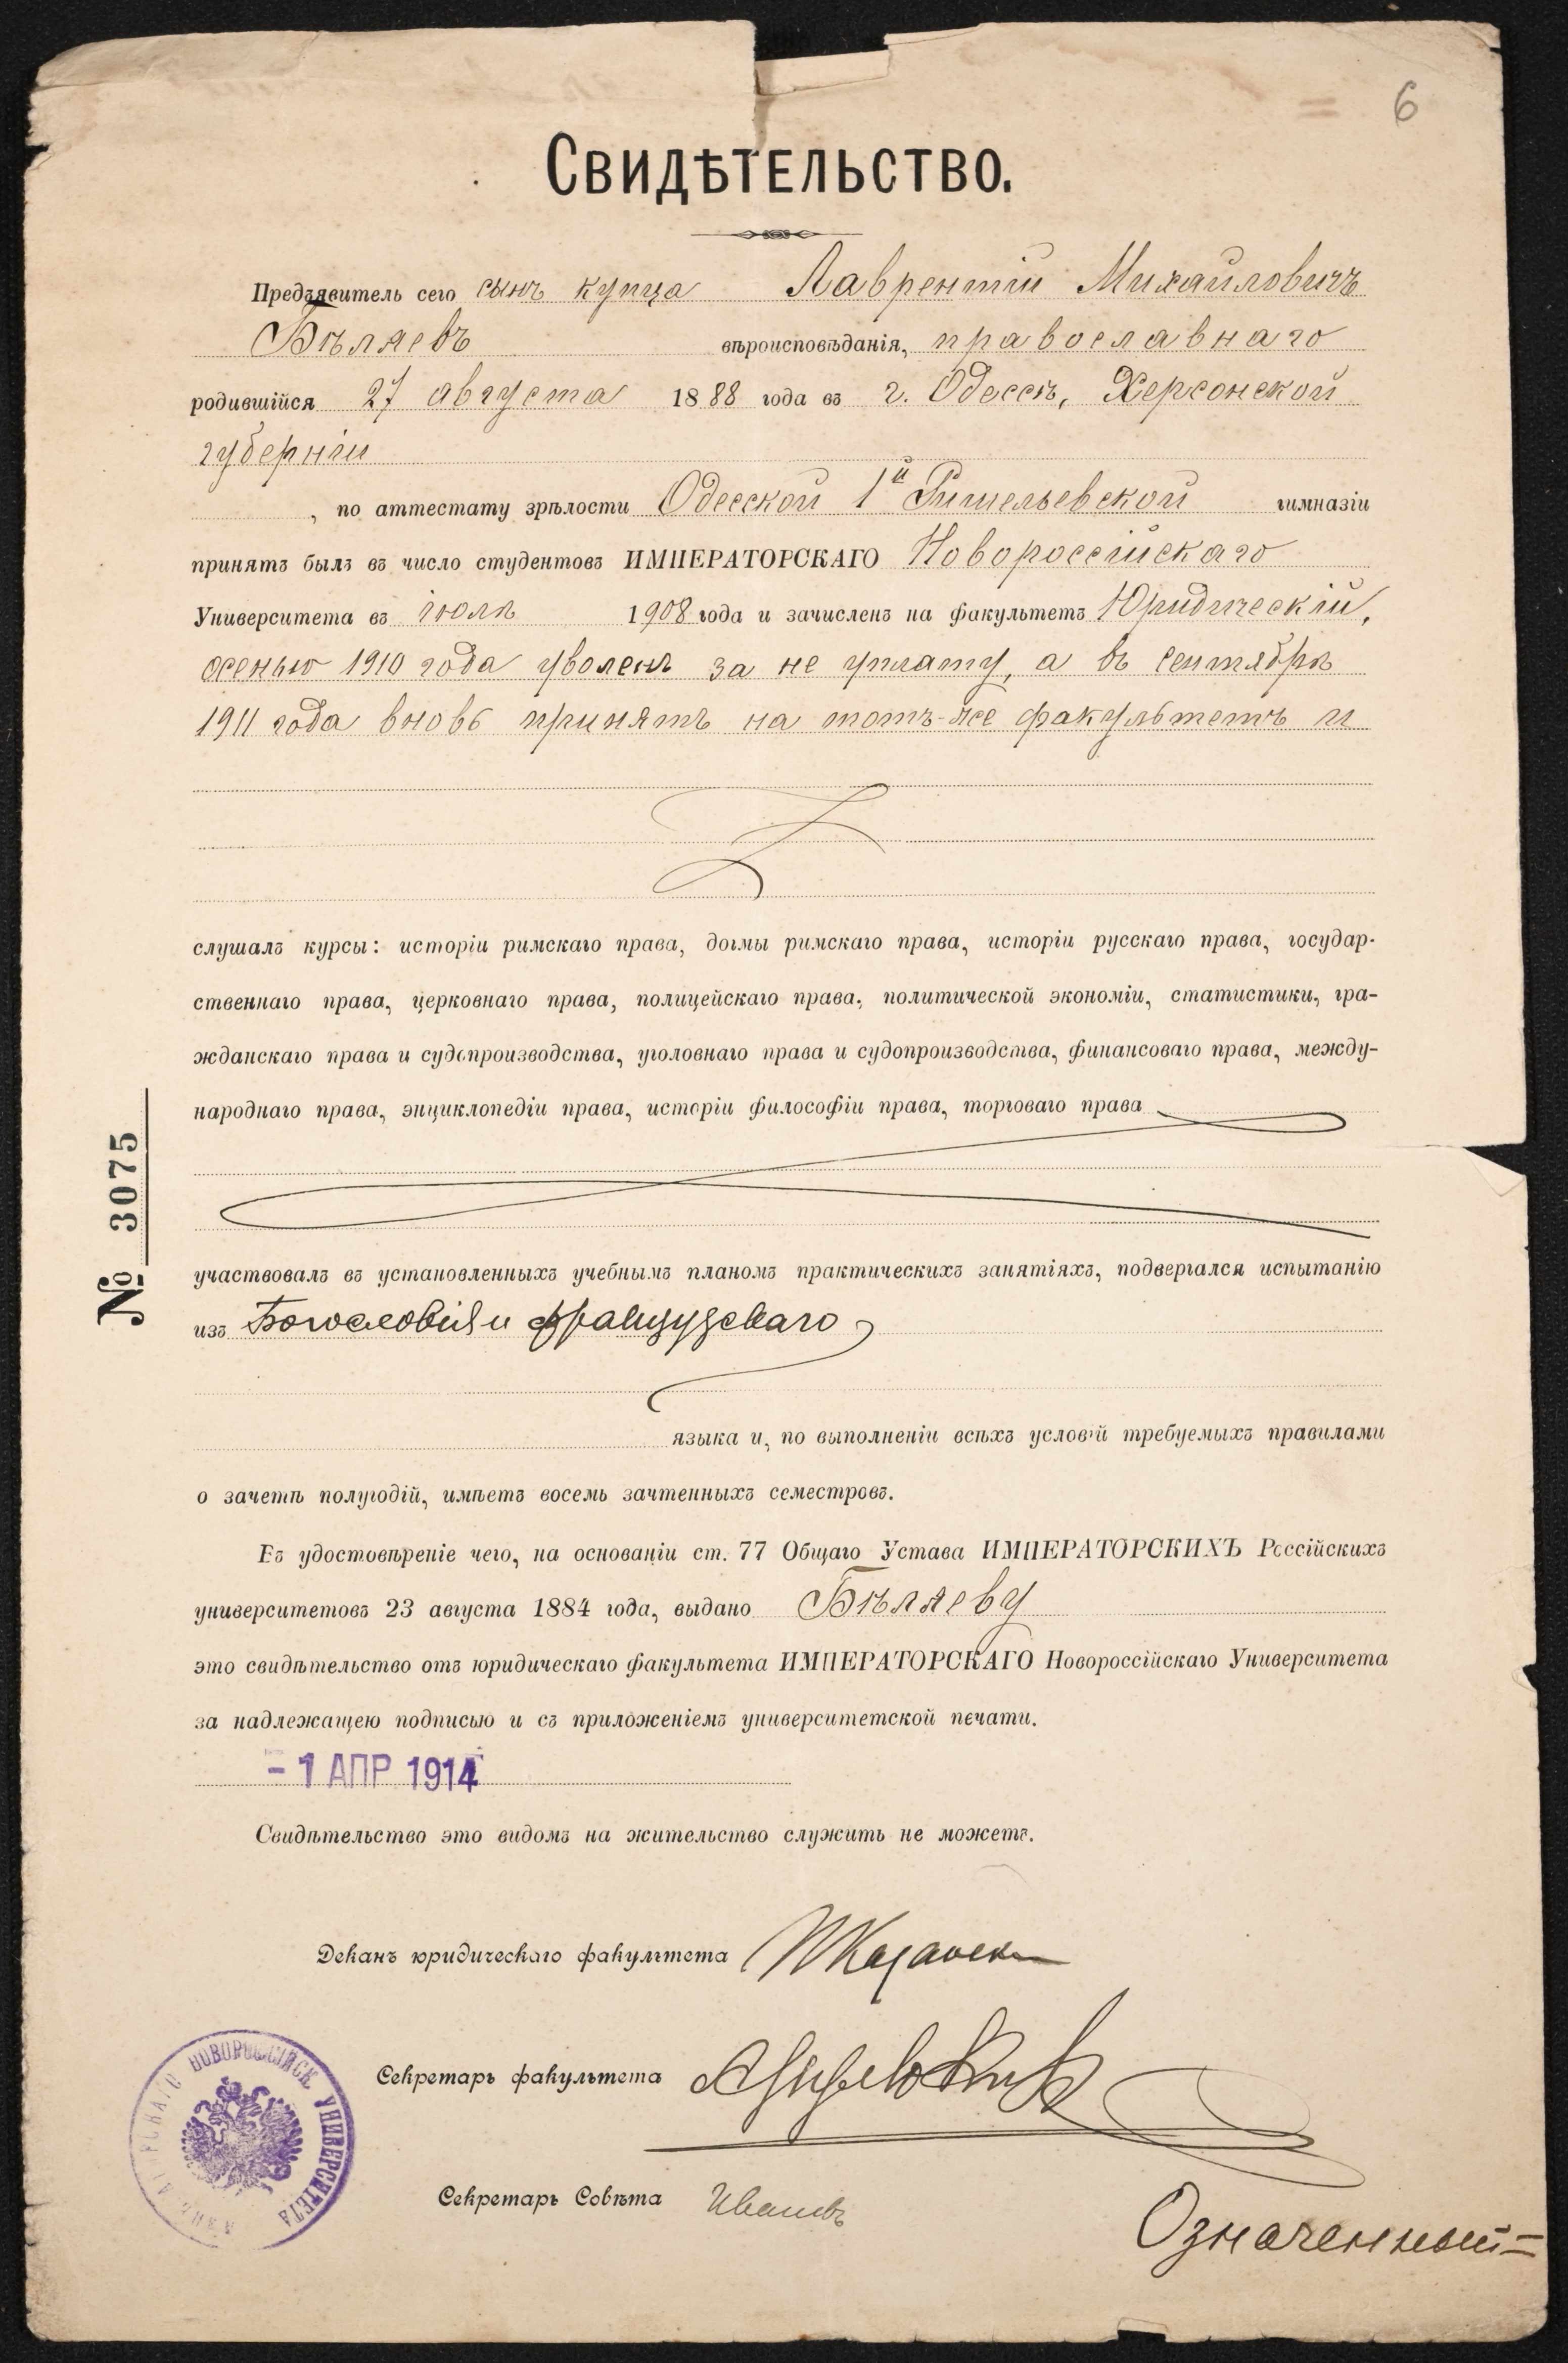 6
Свидѣтельство.
Предъявитель сего сынъ купца Лаврентій Михайловичъ
Бѣляевъ вѣроисповѣданія, православнаго
родившійся 27 августа 1888 года въ г. Одессѣ, Херсонской
губерніи
, по аттестату зрѣлости Одесской 1й Ришельевской гимназіи
принятъ былъ въ число студентовъ ИМПЕРАТОРСКАГО Новороссійскаго
Университета въ іюлѣ 1908 года и зачисленъ на факультетъ Юридическій,
осенью 1910 года уволенъ за не уплату, а въ сентябрѣ
1911 года вновь принятъ на тотъ-же факультетъ и
слушалъ курсы: исторіи римскаго права, догмы римскаго права, исторіи русскаго права, государ-
ственнаго права, церковнаго права, полицейскаго права, политической экономіи, статистики, гра-
жданскаго права и судопроизводства, уголовнаго права и судопроизводства, финансоваго права, между-
народнаго права, энциклопедіи права, исторіи философіи права, торговаго права
№ 3075
участвовалъ въ установленныхъ учебнымъ планомъ практическихъ занятіяхъ, подвергался испытанію
изъ Богословія и французскаго
языка и, по выполненіи всѣхъ условій требуемыхъ правилами
о зачетѣ полугодій, имѣетъ восемь зачтенныхъ семестровъ.
Въ удостовѣреніе чего, на основаніи ст. 77 Общаго Устава ИМПЕРАТОРСКИХЪ Россійскихъ
университетовъ 23 августа 1884 года, выдано Бѣляеву
это свидѣтельство отъ юридическаго факультета ИМПЕРАТОРСКАГО Новороссійскаго Университета
за надлежащею подписью и съ приложеніемъ университетской печати.
- 1 АПР 1914
Свидѣтельство это видомъ на жительство служить не можетъ.
Деканъ юридическаго факультета
Секретарь факультета
Секретарь Совѣта Ивановъ
НОВОРОССІЙСК. УНИВЕРСИТЕТА
Означенный=